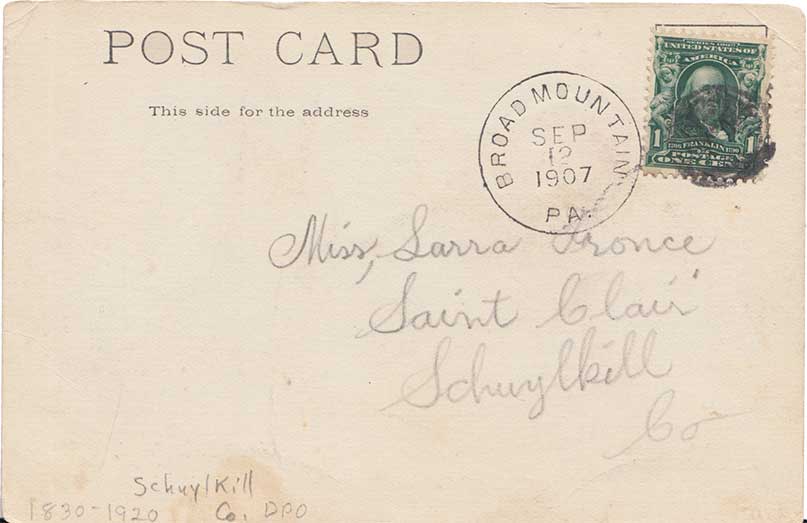 POST CARD
This side for the address
BROAD MOUNTAIN
SEP
12
1907
PA.
SERIES 1902
UNITED STATES OF
AMERICA
1 1
FRANKLIN
POSTAGE
ONE CENT
Miss, Sarra Fronce
Saint Clair
Schuylkill
Co
Schuylkill
1830-1920 Co, DPO